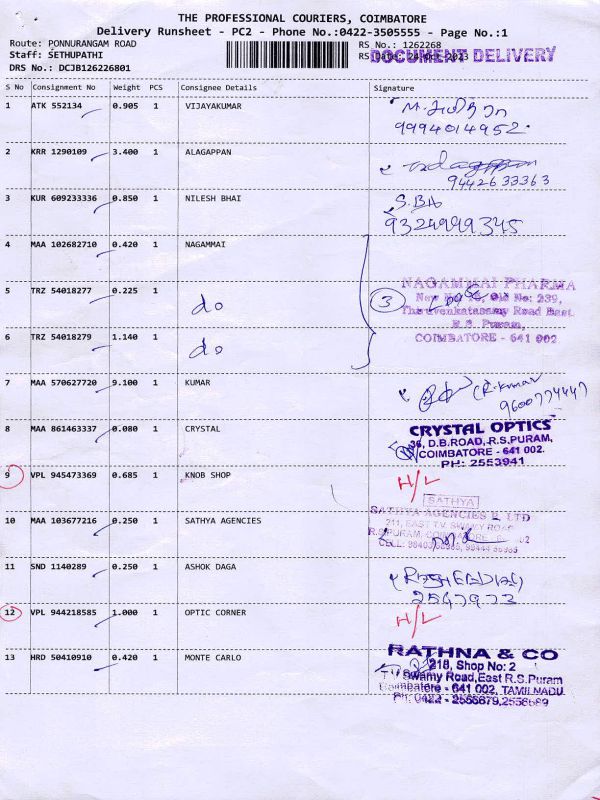 THE PROFESSIONAL COURIERS, COIMBATORE
Delivery Runsheet - PC2 - Phone No.:0422-3505555 - Page No.:1
Route: PONNURANGAM ROAD RS No.: 1262268
Staff: SETHUPATHI RS Date: 24-Oct-2023 DOCUMENT DELIVERY
DRS No.: DCJB126226801
S No Consignment No Weight PCS Consignee Details Signature
1 ATK 552134 0.905 1 VIJAYAKUMAR
9994014952
2 KRR 1290109 3.400 1 ALAGAPPAN
9442633363
3 KUR 609233336 0.850 1 NILESH BHAI S.BA
9324999345
4 MAA 102682710 0.420 1 NAGAMMAI
5 TRZ 54018277 0.225 1 do
6 TRZ 54018279 1.140 1 do
3 NAGAMMAI PHARMA
New No: Old No: 239,
Thiruvenkatasamy Road East
R.S. Puram,
COIMBATORE - 641 002
7 MAA 570627720 9.100 1 KUMAR (R.Kumar
9600774447
8 MAA 861463337 0.080 1 CRYSTAL CRYSTAL OPTICS
36, D.B.ROAD, R.S.PURAM,
COIMBATORE - 641 002.
PH: 2553941
9 VPL 945473369 0.685 1 KNOB SHOP H/L
10 MAA 103677216 0.250 1 SATHYA AGENCIES SATHYA
SATHYA AGENCIES P. LTD
211, EAST T.V. SWAMY ROAD
R.S.PURAM, COIMBATORE
11 SND 1140289 0.250 1 ASHOK DAGA
2547973
12 VPL 944218585 1.000 1 OPTIC CORNER H/L
13 HRD 50410910 0.420 1 MONTE CARLO RATHNA & CO
218, Shop No: 2
T V Swamy Road, East R.S.Puram
Coimbatore - 641 002, TAMILNADU
Ph: 0422 - 2555679,2556689